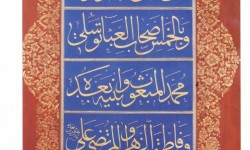 وبالخمس اصحاب العبا توسلي
محمد المبعوث وابنيه بعده
وفاطمة الزهرا والمرتضى علي